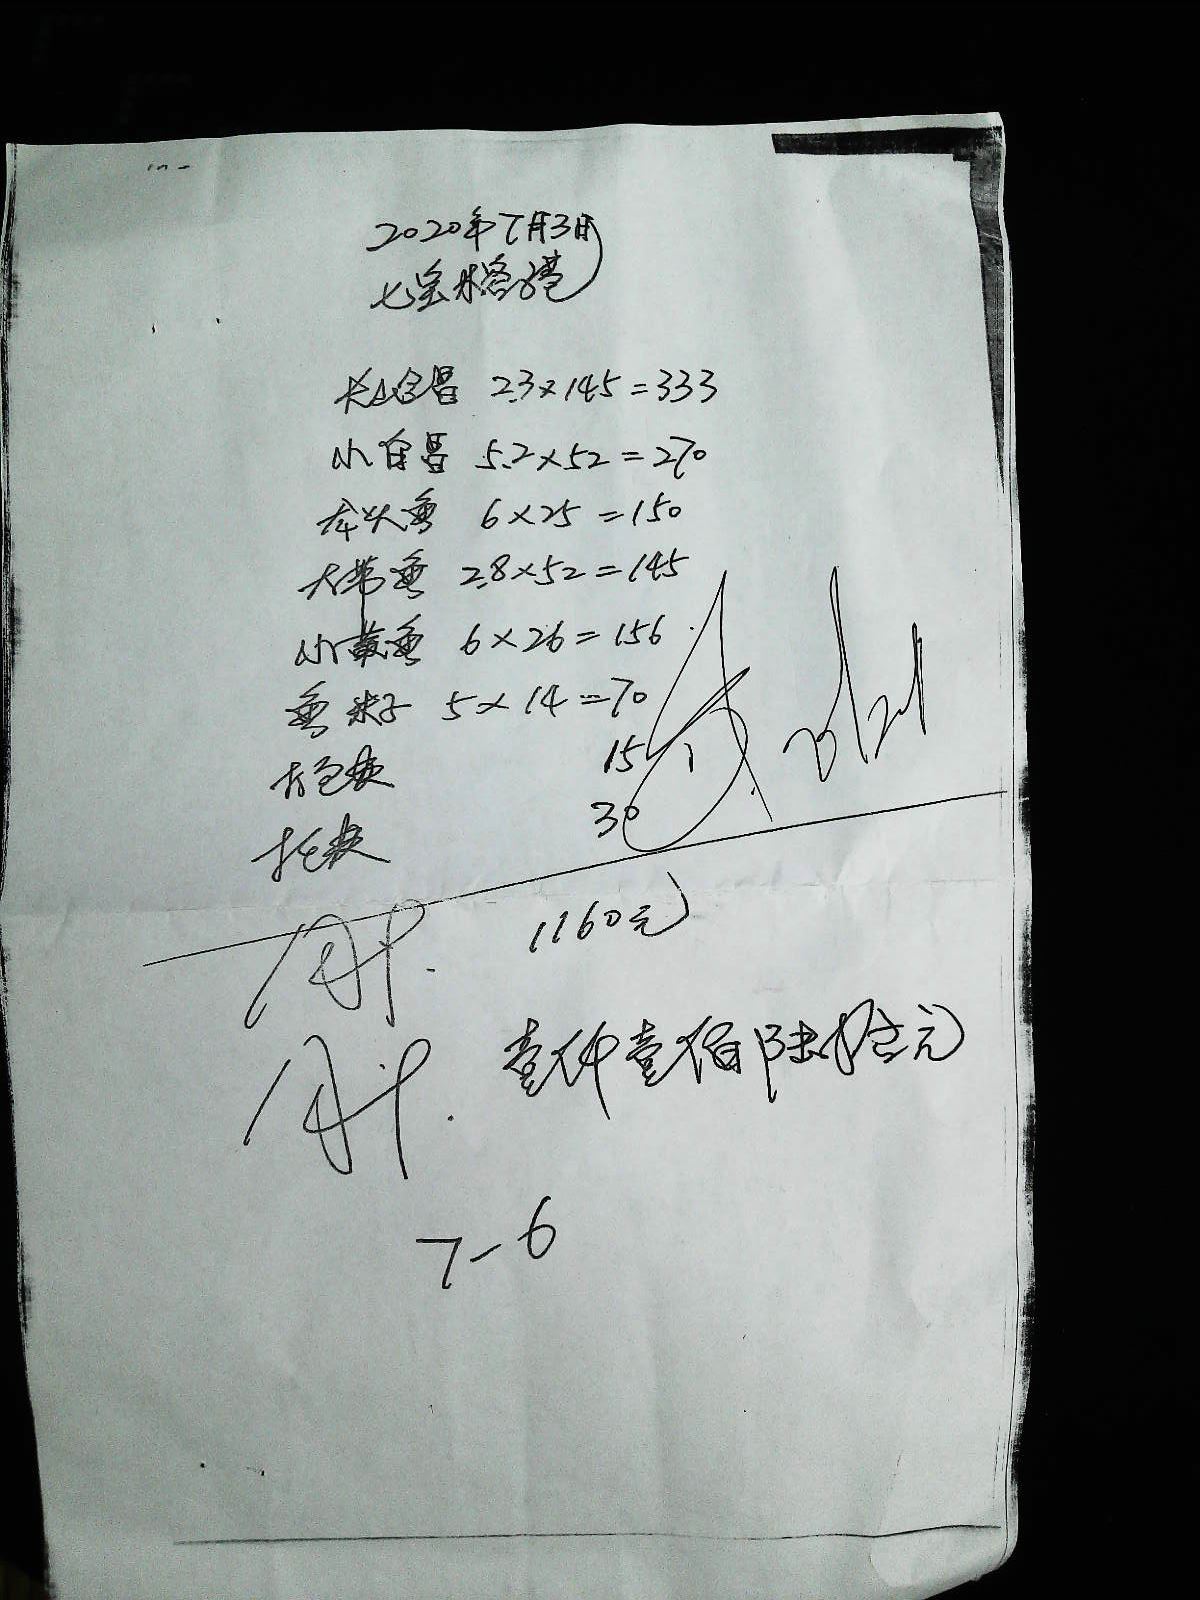 2020年7月3日
七宝水
大白昌 2.3×145=333
小白昌 5.2×52=270
龙头鱼 6×25=150
大带鱼 2.8×52=145
小黄鱼 6×26=156
鱼米子 5×14=70
打包费 15
托费 30
1160元
壹仟壹佰陆拾元
7-6